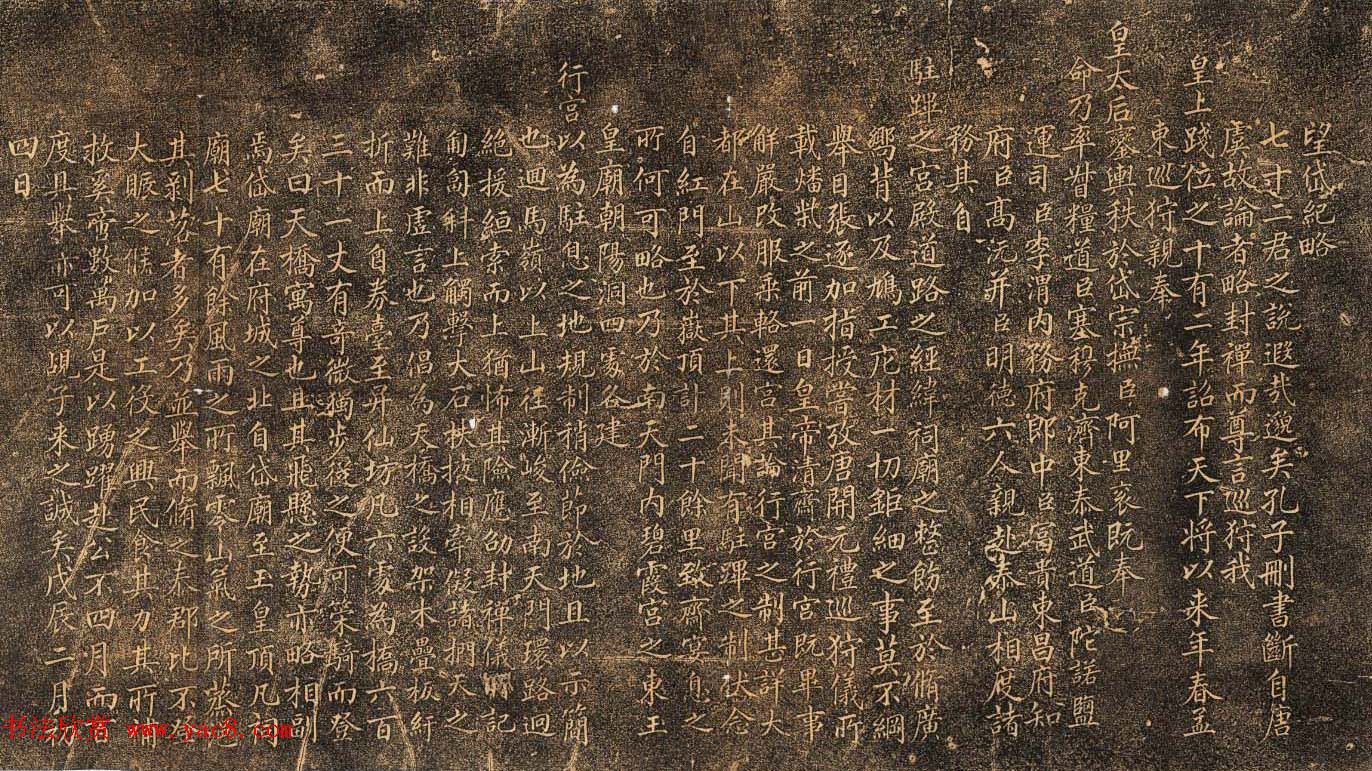 望岱紀略
七十二君之說遐哉邈矣孔子刪書斷自唐
虞故論者略封禪而尊言巡狩我
皇上踐位之十有二年詔布天下將以來年春孟
東巡狩親奉
皇太后鑾輿秩於岱宗撫臣阿里袞既奉
命乃率督糧道臣塞穆克濟東泰武道臣陀諾鹽
運司臣李渭內務府郎中臣富貴東昌府知
府臣高沅并臣明德六人親赴泰山相度諸
務其自
駐蹕之宮殿道路之經緯祠廟之整飭至於脩廣
嚮背以及鳩工庀材一切鉅細之事莫不綱
舉目張逐加指授嘗攷唐開元禮巡狩儀所
載燔柴之前一日皇帝清齋於行宮既畢事
解嚴改服乘輅還宮其論行宮之制甚詳大
都在山以下其上則未聞有駐蹕之制伏念
自紅門至於嶽頂計二十餘里致齋宴息之
所何可略也乃於南天門內碧霞宮之東玉
皇廟朝陽洞四處各建
行宮以為駐息之地規制稍儉節於地且以示簡
也迴馬嶺以上山徑漸峻至南天門環路迴
絕援絙索而上猶怖其險應劭封禪儀記
匍匐斜上觸擊大石扶掖相牽儗諸捫天之
難非虛言也乃倡為天橋之設架木疊板紆
折而上自券臺至昇仙坊凡六處為橋六百
三十一丈有奇微獨步從之便可策騎而登
矣曰天橋寓尊也且其飛懸之勢亦略相副
焉岱廟在府城之北自岱廟至玉皇頂凡
廟七十有餘風雨之所飄零山氣之所蒸
其剝落者多矣乃並舉而脩之泰郡比不
大賑之餘加以工役之興民食其力其所
救奚啻數萬戶是以踴躍赴公不四月而
度具舉亦可以覘子來之誠矣戊辰二月
四日
书法欣赏 www.yac8.com